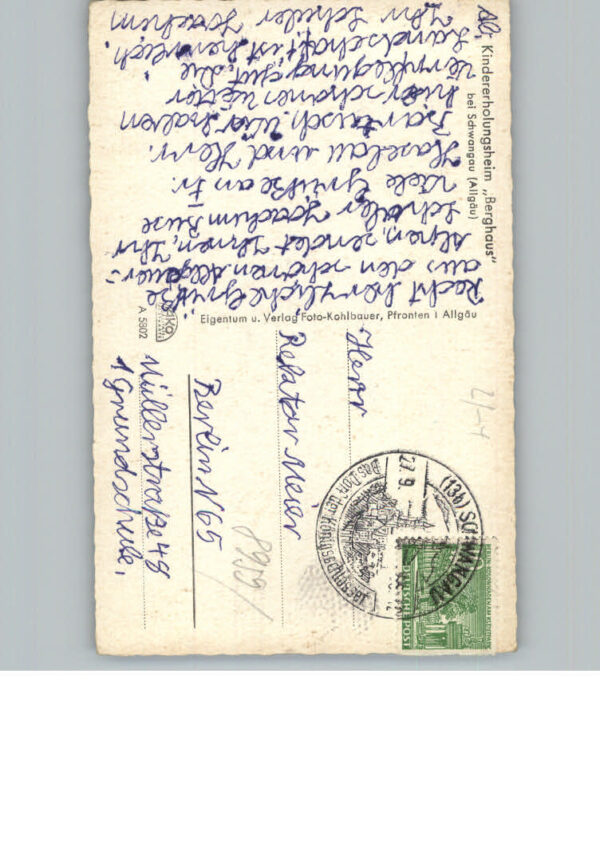 Kindererholungsheim „Berghaus"
bei Schwangau (Allgäu)
Recht herzliche Grüße
aus den schönen Allgäuer-
Alpen, sendet Ihnen, Ihr
Schüler Joachim
Viele Grüße an Fr.
Haselau und Herr.
Bartusch. Wir haben
hier schönes Wetter
Verpflegung gut, die
Landschaft ist herrlich.
Ihr Schüler Joachim
Eigentum u. Verlag Foto-Kohlbauer, Pfronten i Allgäu
A 5802
Herr
Rektor Meier
Berlin N 65
Müllerstraße 48
1 Grundschule.
(13b) SCHWANGAU
Das Dorf der Königsschlösser
27.9.
DEUTSCHE POST